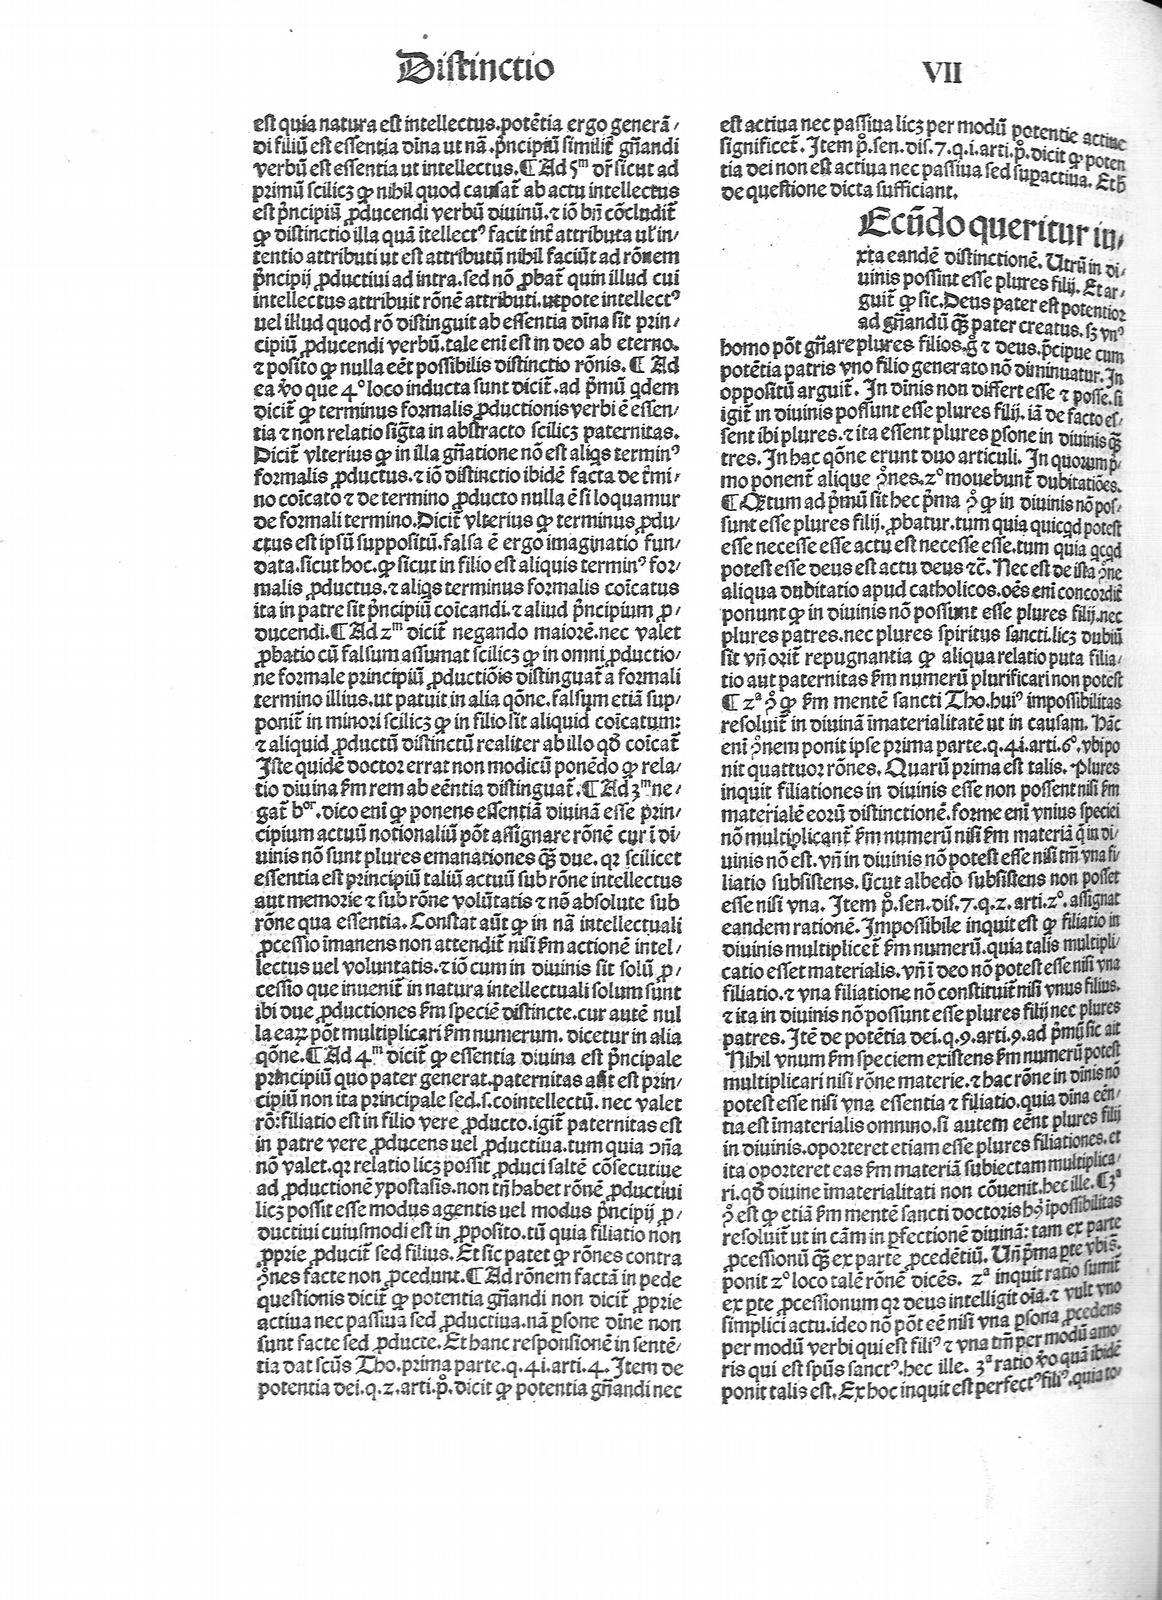 Distinctio
VII
est quia natura est intellectus.potẽtia ergo generã/
di filiũ est essentia diña ut nã.p̃ncipiũ similit̃ gñandi
verbũ est essentia ut intellectus.¶Ad 5ᵐ dr̃ sicut ad
primũ scilicꝫ ꝙ nihil quod causat̃ ab actu intellectus
est p̃ncipiũ ꝓducendi verbũ diuinũ.⁊ iõ bñ cõcludit̃
ꝙ distinctio illa quã ĩtellectꝰ facit int̃ attributa ul̃ in/
tentio attributi ut est attributũ nihil faciũt ad rõnem
p̃ncipij ꝓductiui ad intra.sed nõ ꝓbat̃ quin illud cui
intellectus attribuit rõnẽ attributi.utpote intellectꝰ
uel illud quod rõ distinguit ab essentia diña sit prin/
cipiũ ꝓducendi verbũ.tale enĩ est in deo ab eterno.
⁊ posito ꝙ nulla eẽt possibilis distinctio rõnis.¶ Ad
ea ṽo que 4ᵒ loco inducta sunt dicit̃.ad p̃mũ qdem
dicit̃ ꝙ terminus formalis ꝓductionis verbi ẽ essen/
tia ⁊ non relatio sig̃ta in abstracto scilicꝫ paternitas.
Dicit̃ vlterius ꝙ in illa gñatione nõ est aliqs terminꝰ
formalis ꝓductus.⁊ iõ distinctio ibidẽ facta de t̃mi/
no coĩcato ⁊ de termino ꝓducto nulla ẽ si loquamur
de formali termino.Dicit̃ vlterius ꝙ terminus ꝓdu/
ctus est ipsũ suppositũ.falsa ẽ ergo imaginatio fun/
data.sicut hoc.ꝙ sicut in filio est aliquis terminꝰ for/
malis ꝓductus.⁊ aliqs terminus formalis coĩcatus
ita in patre sit p̃ncipiũ coĩcandi.⁊ aliud p̃ncipium ꝓ/
ducendi.¶Ad zᵐ dicit̃ negando maiorẽ.nec valet
ꝓbatio cũ falsum assumat scilicꝫ ꝙ in omni ꝓductio/
ne formale principiũ ꝓductiõis distinguat̃ a formali
termino illius.ut patuit in alia qõne.falsum etiã sup/
ponit̃ in minori scilicꝫ ꝙ in filio sit aliquid coĩcatum:
⁊ aliquid ꝓductũ distinctũ realiter ab illo qd̃ coĩcat̃
Iste quidẽ doctor errat non modicũ ponẽdo ꝙ rela/
tio diuina s̃m rem ab eẽntia distinguat̃.¶Ad 3ᵐ ne/
gat̃ hᵒʳ.dico enĩ ꝙ ponens essentiã diuinã esse prin/
cipium actuũ notionaliũ põt assignare rõnẽ cur ĩ di/
uinis nõ sunt plures emanationes qꝫ̃ due.qꝛ scilicet
essentia est principiũ taliũ actuũ sub rõne intellectus
aut memorie ⁊ sub rõne volũtatis ⁊ nõ absolute sub
rõne qua essentia.Constat aũt ꝙ in nã intellectuali
ꝓcessio ĩmanens non attendit̃ nisi s̃m actionẽ intel/
lectus uel voluntatis.⁊ iõ cum in diuinis sit solũ ꝓ/
cessio que inuenit̃ in natura intellectuali solum sunt
ibi due ꝓductiones s̃m speciẽ distincte.cur autẽ nul
la eaꝝ põt multiplicari s̃m numerum.dicetur in alia
qõne.¶Ad 4ᵐ dicit̃ ꝙ essentia diuina est p̃ncipale
principiũ quo pater generat.paternitas aũt est prin/
cipiũ non ita principale sed.s.cointellectũ.nec valet
rõ:filiatio est in filio vere ꝓducto.igit̃ paternitas est
in patre vere ꝓducens uel ꝓductiua.tum quia ↄñã
nõ valet.qꝛ relatio licꝫ possit ꝓduci saltẽ cõsecutiue
ad ꝓductionẽ ypostasis.non tñ habet rõnẽ ꝓductiui
licꝫ possit esse modus agentis uel modus p̃ncipij ꝓ/
ductiui cuiusmodi est in ꝓposito.tũ quia filiatio non
ꝓprie ꝓducit̃ sed filius.Et sic patet ꝙ rõnes contra
ↄ̃nes facte non ꝓcedunt.¶Ad rõnem factã in pede
questionis dicit̃ ꝙ potentia gñandi non dicit̃ ꝓprie
actiua nec passiua sed ꝓductiua.nã ꝑsone diñe non
sunt facte sed ꝓducte.Et hanc responsionẽ in sentẽ/
tia dat sc̃us Tho.prima parte.q.41.arti.4.Item de
potentia dei.q.z.arti.p̊.dicit ꝙ potentia gñandi nec
est actiua nec passiua licꝫ per modũ potentie actiue
significet̃.Item p̊.sen.dis.7.q.i.arti.p̊.dicit ꝙ poten
tia dei non est actiua nec passiua sed supactiua.Et h̃
de questione dicta sufficiant.
Ecũdo queritur in/
xta eandẽ distinctionẽ.Utrũ in di/
uinis possint esse plures filij.Et ar/
guit̃ ꝙ sic.Deus pater est potentior
ad gñandũ qꝫ̃ pater creatus.sꝫ vnꝰ
homo põt gñare plures filios.g̊ ⁊ deus.p̃cipue cum
potẽtia patris vno filio generato nõ diminuatur.In
oppositũ arguit̃.In diñis non differt esse ⁊ posse.si
igit̃ in diuinis possunt esse plures filij.iã de facto es/
sent ibi plures.⁊ ita essent plures ꝑsone in diuinis qꝫ̃
tres.In hac qõne erunt duo articuli.In quorum p̃/
mo ponent̃ alique ↄ̃nes.zᵒ mouebunt̃ dubitatiões.
¶Qᷓtum ad p̃mũ sit hec p̃ma ↄ̊ ꝙ in diuinis nõ pos/
sunt esse plures filij.ꝓbatur.tum quia quicqd potest
esse necesse esse actu est necesse esse.tum quia qcqd
potest esse deus est actu deus ⁊c̃.Nec est de ista ↄ̃ne
aliqua dubitatio apud catholicos.oẽs enĩ concordit̃
ponunt ꝙ in diuinis nõ possunt esse plures filij.nec
plures patres.nec plures spiritus sancti.licꝫ dubiũ
sit vñ orit̃ repugnantia ꝙ aliqua relatio puta filia/
tio aut paternitas s̃m numerũ plurificari non potest
¶ zᵃ ↄ̊ ꝙ s̃m mentẽ sancti Tho.huiꝰ impossibilitas
resoluit̃ in diuinã ĩmaterialitatẽ ut in causam.Hãc
enĩ ↄ̃nem ponit ipse prima parte.q.41.arti.6ᵒ.vbi po
nit quattuor rõnes.Quarũ prima est talis.Plures
inquit filiationes in diuinis esse non possent nisi s̃m
materialẽ eorũ distinctionẽ.forme enĩ vnius speciei
nõ multiplicant̃ s̃m numerũ nisi s̃m materiã q̃ in di/
uinis nõ est.vñ in diuinis nõ potest esse nisi tm̃ vna fi/
liatio subsistens.sicut albedo subsistens non posset
esse nisi vna.Item p̊.sen.dis.7.q.z.arti.zᵒ.assignat
eandem rationẽ.Impossibile inquit est ꝙ filiatio in
diuinis multiplicet̃ s̃m numerũ.quia talis multipli/
catio esset materialis.vñ ĩ deo nõ potest esse nisi vna
filiatio.⁊ vna filiatione nõ constituit̃ nisi vnus filius.
⁊ ita in diuinis nõ possunt esse plures filij nec plures
patres.Itẽ de potẽtia dei.q.9.arti.9.ad p̃mũ sic ait
Nihil vnum s̃m speciem existens s̃m numerũ potest
multiplicari nisi rõne materie.⁊ hac rõne in diñis nõ
potest esse nisi vna essentia ⁊ filiatio.quia diña eẽn/
tia est ĩmaterialis omnino.si autem eẽnt plures filij
in diuinis.oporteret etiam esse plures filiationes.et
ita oporteret eas s̃m materiã subiectam multiplica/
ri.qd̃ diuine ĩmaterialitati non cõuenit.hec ille.¶3ᵃ
ↄ̊ est ꝙ etiã s̃m mentẽ sancti doctoris hꝰ ĩpossibilitas
resoluit̃ ut in cãm in ꝑfectionẽ diuinã:tam ex parte
ꝓcessionũ qꝫ̃ ex parte ꝓcedẽtiũ.Uñ p̃ma pte vbi s̃.
ponit zᵒ loco talẽ rõnẽ dicẽs. zᵃ inquit ratio sumit̃
ex pte ꝓcessionum qꝛ deus intelligit oĩa.⁊ vult vno
simplici actu.ideo nõ põt eẽ nisi vna ꝑsona ꝓcedens
per modũ verbi qui est filiꝰ ⁊ vna tm̃ per modũ amo/
ris qui est spũs sanctꝰ.hec ille. 3ᵃ ratio ṽo quã ibidẽ
ponit talis est.Ex hoc inquit est perfectꝰ filiꝰ.quia to/